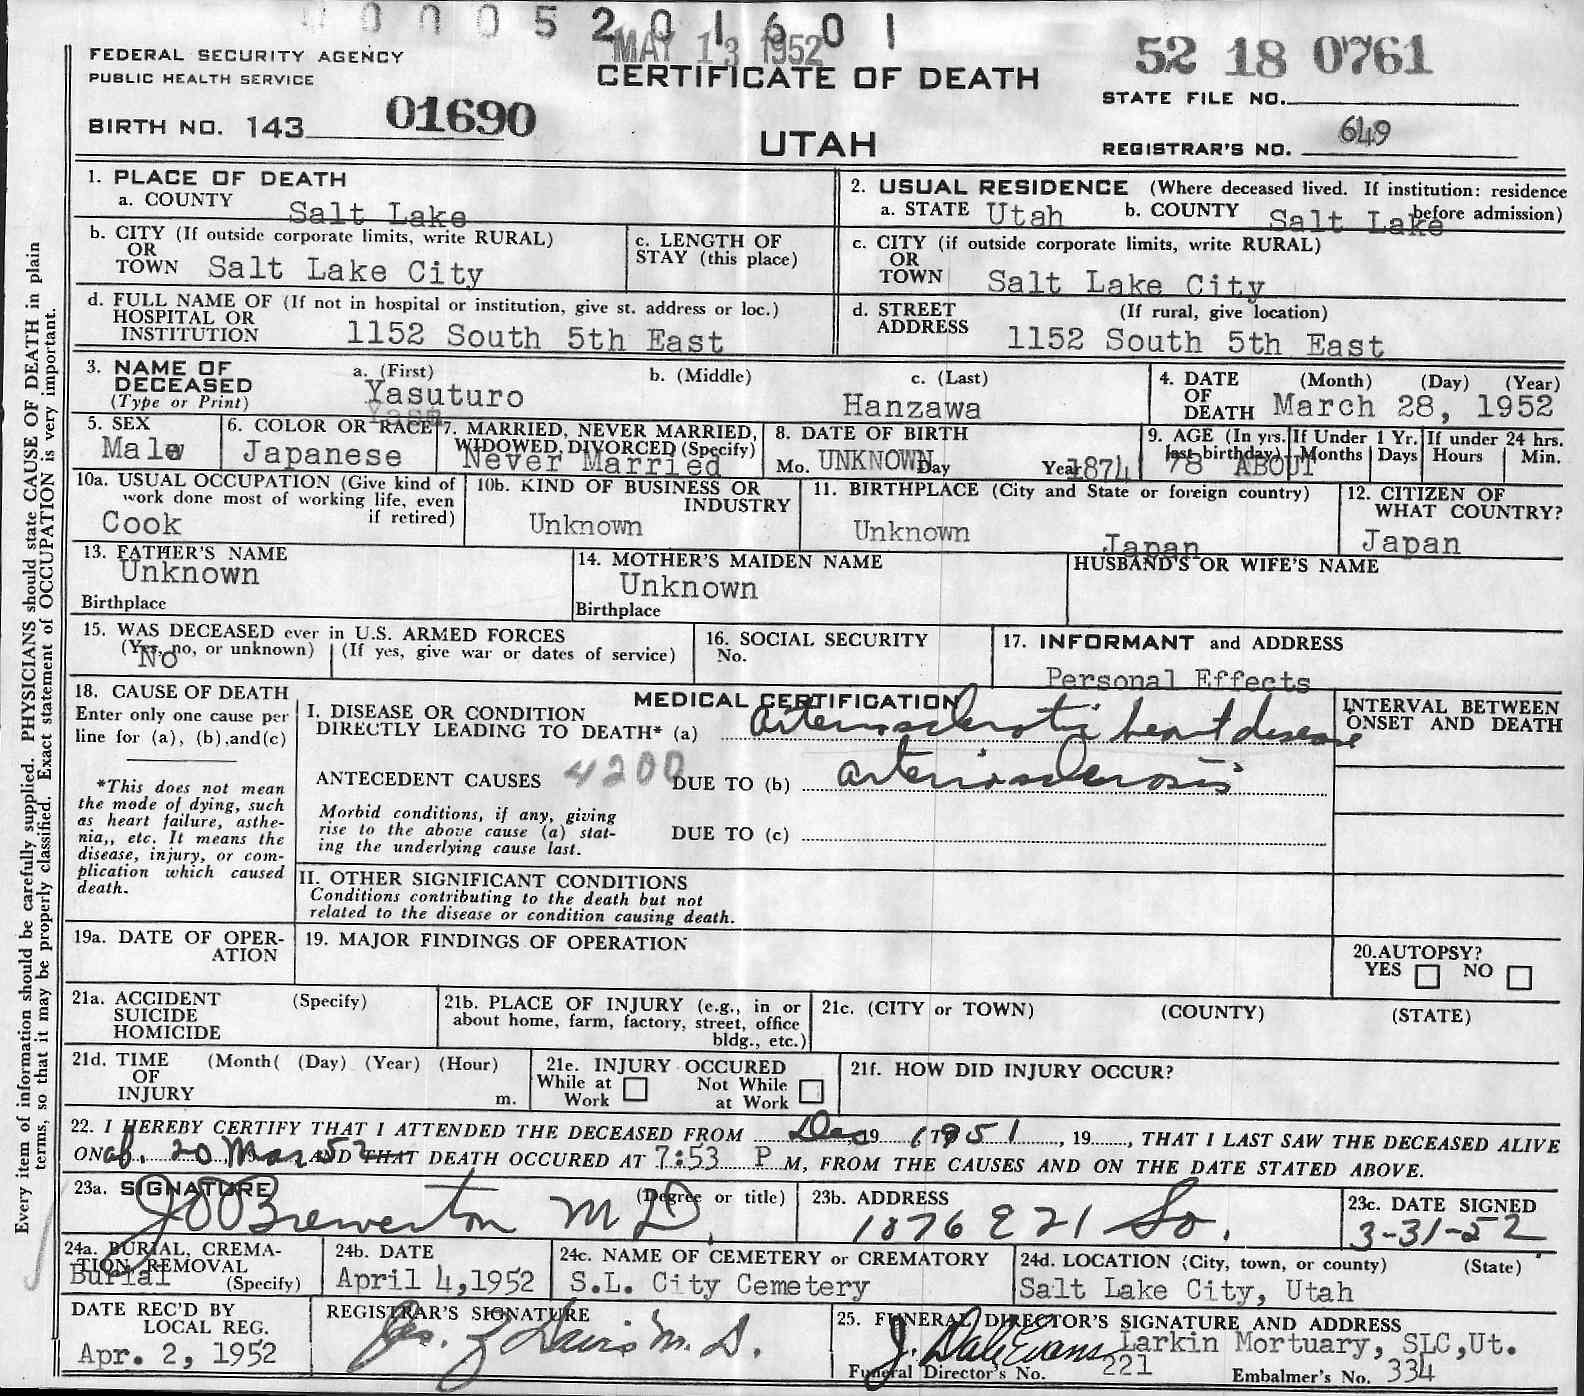 0 0 0 5 2 0 1 6 0 1
MAY 13 1952
FEDERAL SECURITY AGENCY
PUBLIC HEALTH SERVICE
CERTIFICATE OF DEATH
52 18 0761
STATE FILE NO.
BIRTH NO. 143 01690
UTAH
649
REGISTRAR'S NO.
1. PLACE OF DEATH
a. COUNTY Salt Lake
2. USUAL RESIDENCE (Where deceased lived. If institution: residence before admission)
a. STATE Utah b. COUNTY Salt Lake
b. CITY (If outside corporate limits, write RURAL)
OR
TOWN Salt Lake City
c. LENGTH OF
STAY (this place)
c. CITY (if outside corporate limits, write RURAL)
OR
TOWN Salt Lake City
d. FULL NAME OF (If not in hospital or institution, give st. address or loc.)
HOSPITAL OR
INSTITUTION 1152 South 5th East
d. STREET (If rural, give location)
ADDRESS 1152 South 5th East
3. NAME OF
DECEASED
(Type or Print)
a. (First) b. (Middle) c. (Last)
Yasuturo Hanzawa
4. DATE (Month) (Day) (Year)
OF
DEATH March 28, 1952
5. SEX
Male
6. COLOR OR RACE
Japanese
7. MARRIED, NEVER MARRIED,
WIDOWED, DIVORCED (Specify)
Never Married
8. DATE OF BIRTH
Mo. UNKNOWN Day Year 1874
9. AGE (In yrs. last birthday) 78 ABOUT
If Under 1 Yr.
Months Days
If under 24 hrs.
Hours Min.
10a. USUAL OCCUPATION (Give kind of
work done most of working life, even
if retired)
Cook
10b. KIND OF BUSINESS OR
INDUSTRY
Unknown
11. BIRTHPLACE (City and State or foreign country)
Unknown
Japan
12. CITIZEN OF
WHAT COUNTRY?
Japan
13. FATHER'S NAME
Unknown
Birthplace
14. MOTHER'S MAIDEN NAME
Unknown
Birthplace
HUSBAND'S OR WIFE'S NAME
15. WAS DECEASED ever in U.S. ARMED FORCES
(Yes, no, or unknown) (If yes, give war or dates of service)
No
16. SOCIAL SECURITY
No.
17. INFORMANT and ADDRESS
Personal Effects
18. CAUSE OF DEATH
Enter only one cause per
line for (a), (b),and(c)
*This does not mean
the mode of dying, such
as heart failure, asthe-
nia,, etc. It means the
disease, injury, or com-
plication which caused
death.
MEDICAL CERTIFICATION
I. DISEASE OR CONDITION
DIRECTLY LEADING TO DEATH* (a) arteriosclerotic heart disease
ANTECEDENT CAUSES 4200 DUE TO (b) arteriosclerosis
Morbid conditions, if any, giving
rise to the above cause (a) stat-
ing the underlying cause last.
DUE TO (c)
II. OTHER SIGNIFICANT CONDITIONS
Conditions contributing to the death but not
related to the disease or condition causing death.
INTERVAL BETWEEN
ONSET AND DEATH
19a. DATE OF OPER-
ATION
19. MAJOR FINDINGS OF OPERATION
20.AUTOPSY?
YES NO
21a. ACCIDENT (Specify)
SUICIDE
HOMICIDE
21b. PLACE OF INJURY (e.g., in or
about home, farm, factory, street, office
bldg., etc.)
21c. (CITY or TOWN) (COUNTY) (STATE)
21d. TIME (Month( (Day) (Year) (Hour)
OF
INJURY m.
21e. INJURY OCCURED
While at Work Not While at Work
21f. HOW DID INJURY OCCUR?
22. I HEREBY CERTIFY THAT I ATTENDED THE DECEASED FROM Dec 19 51, 19, THAT I LAST SAW THE DECEASED ALIVE
ON ab. 20 Mar 52 AND THAT DEATH OCCURED AT 7:53 P M, FROM THE CAUSES AND ON THE DATE STATED ABOVE.
23a. SIGNATURE (Degree or title)
Brewerton MD.
23b. ADDRESS
1876 E 21 So.
23c. DATE SIGNED
3-31-52
24a. BURIAL, CREMA-
TION REMOVAL
(Specify)
Burial
24b. DATE
April 4,1952
24c. NAME OF CEMETERY or CREMATORY
S.L. City Cemetery
24d. LOCATION (City, town, or county) (State)
Salt Lake City, Utah
DATE REC'D BY
LOCAL REG.
Apr. 2, 1952
REGISTRAR'S SIGNATURE
Jas. Z Davis M.D.
25. FUNERAL DIRECTOR'S SIGNATURE AND ADDRESS
J. Dale Evans Larkin Mortuary, SLC,Ut.
Funeral Director's No. 221 Embalmer's No. 334
Every item of information should be carefully supplied. PHYSICIANS should state CAUSE OF DEATH in plain
terms, so that it may be properly classified. Exact statement of OCCUPATION is very important.